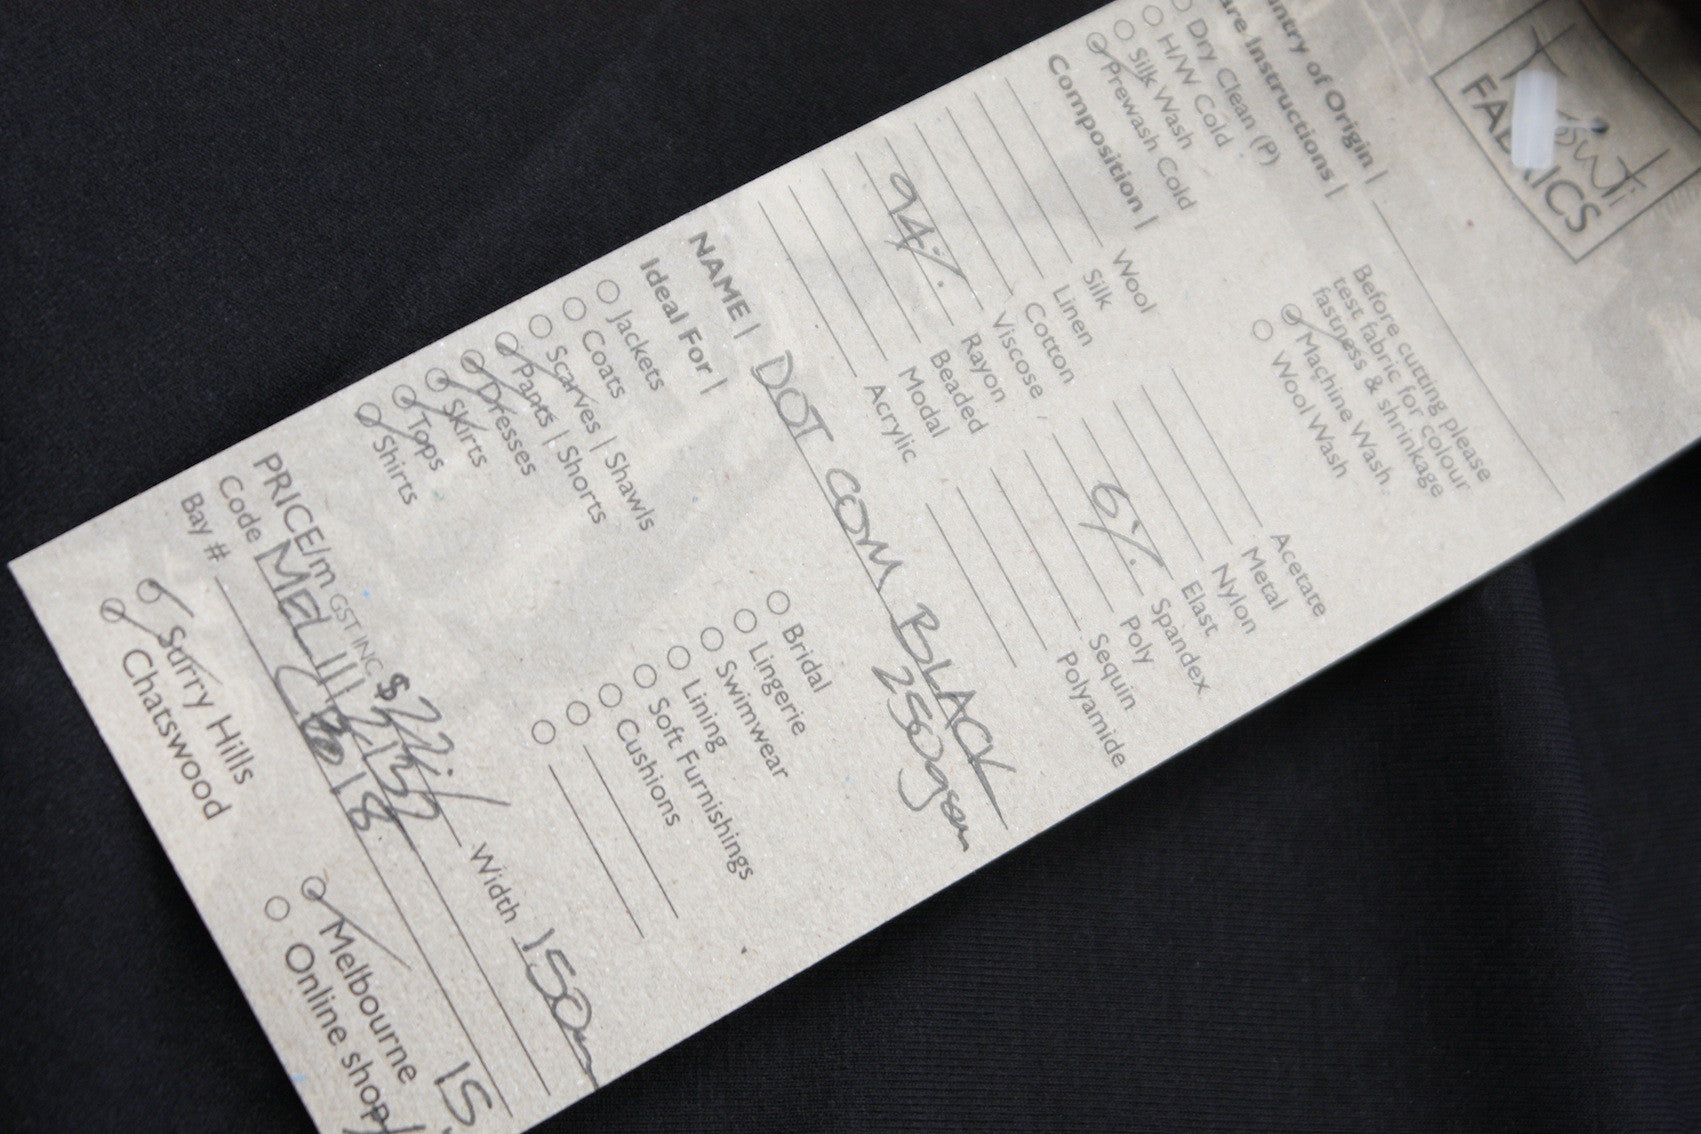 FABRICS
Before cutting please
test fabric for colour
fastness & shrinkage
Country of Origin |
Care Instructions |
Dry Clean (P)
H/W Cold
Silk Wash
Prewash Cold
Machine Wash
Wool Wash
Composition |
Wool
Silk
Linen
Cotton
Viscose
94% Rayon
Beaded
Modal
Acrylic
Acetate
Metal
Nylon
Elast
6% Spandex
Poly
Sequin
Polyamide
NAME | DOT COM BLACK
250gsm
Ideal For |
Jackets
Coats
Scarves | Shawls
Pants | Shorts
Dresses
Skirts
Tops
Shirts
Bridal
Lingerie
Swimwear
Lining
Soft Furnishings
Cushions
PRICE/m GST INC $22 Width 150cm
Code
Bay #
Surry Hills
Chatswood
Melbourne
Online shop